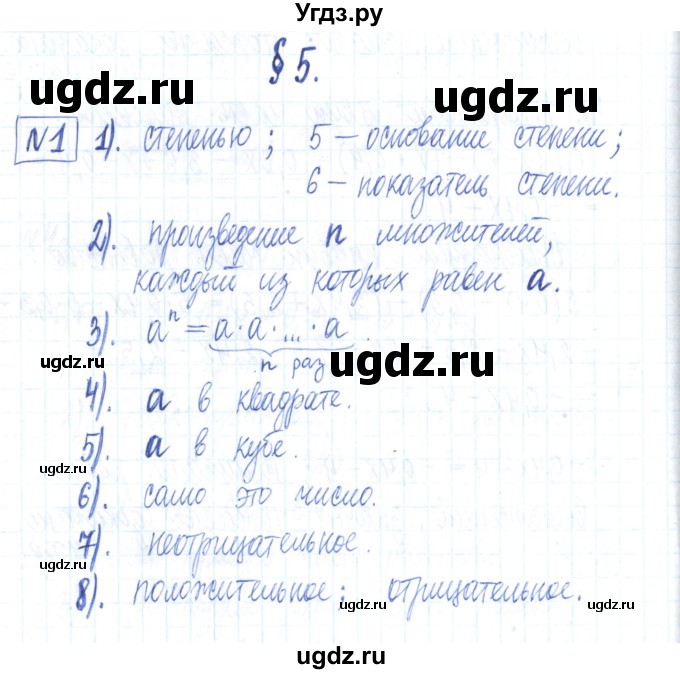 Угдз.ру
§ 5.
ugdz.ru ugdz.ru
№1 1). степенью; 5 – основание степени;
6 – показатель степени.
2). произведение n множителей,
каждый из которых равен a.
3). aⁿ = a · a · ... · a.
n раз
ugdz.ru ugdz.ru
4). a в квадрате.
5). a в кубе.
ugdz.ru
6). само это число.
7). неотрицательное.
ugdz.ru
8). положительное; отрицательное.
ugdz.ru
ugdz.ru